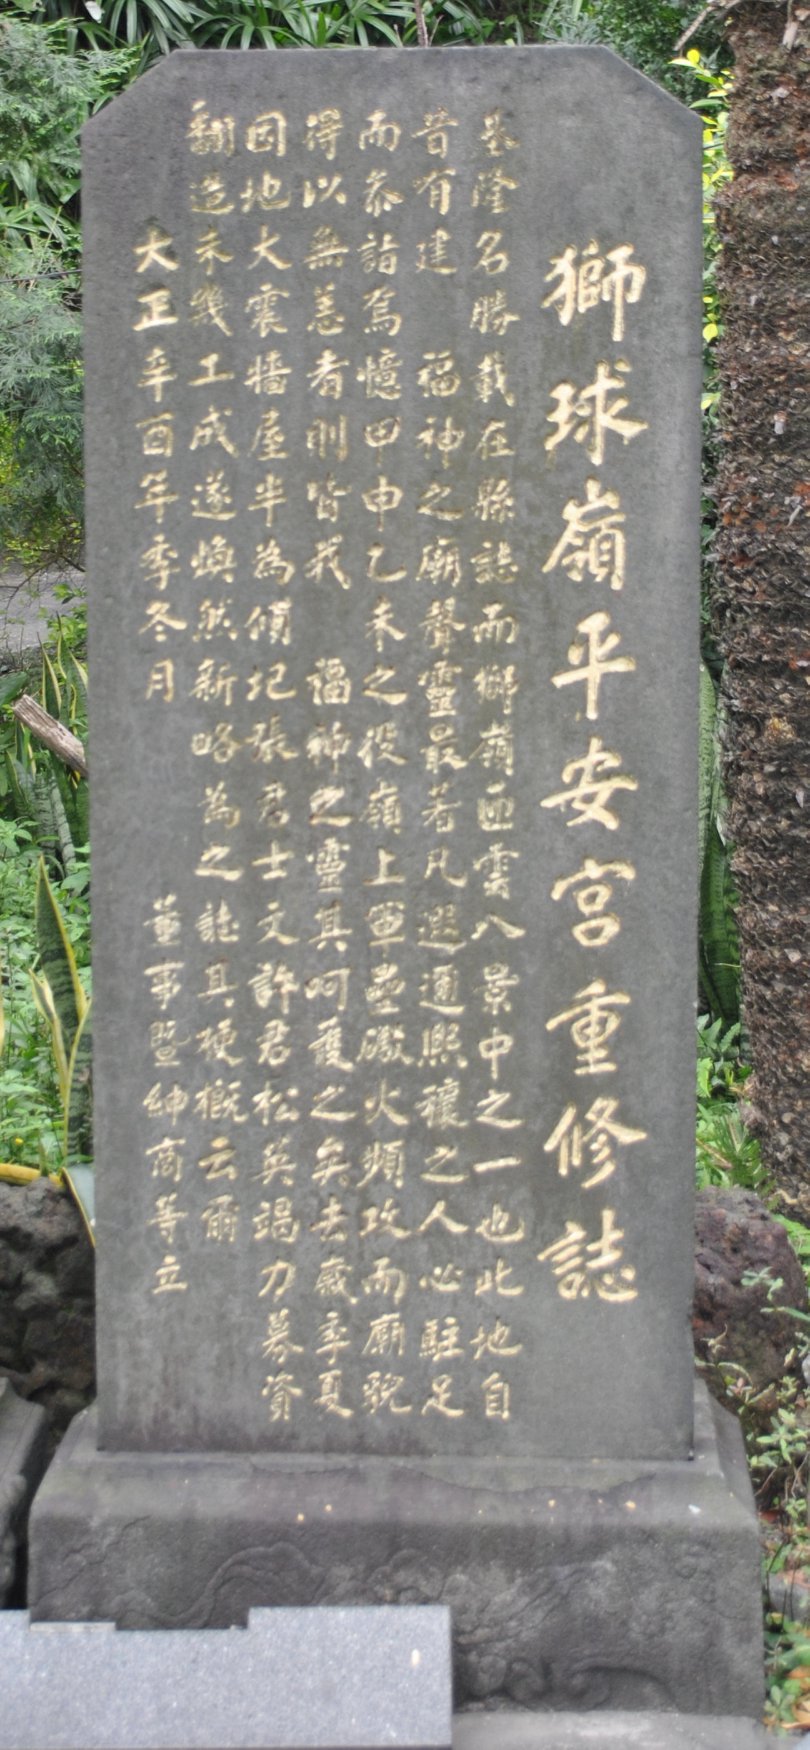 獅球嶺平安宮重修誌
基隆名勝載在縣誌而獅嶺匝雲八景中之一也此地自
昔有建　福神之廟聲靈最著凡遐邇熙穰之人必駐足
而參詣焉憶甲申乙未之役嶺上軍壘礮火頻攻而廟貌
得以無恙者則皆我　福神之靈其呵護之矣去歲季夏
因地大震牆屋半為傾圮張君士文許君松英竭力募資
翻造未幾工成遂煥然新略為之誌具梗概云爾
大正辛酉年季冬月　董事暨紳商等立